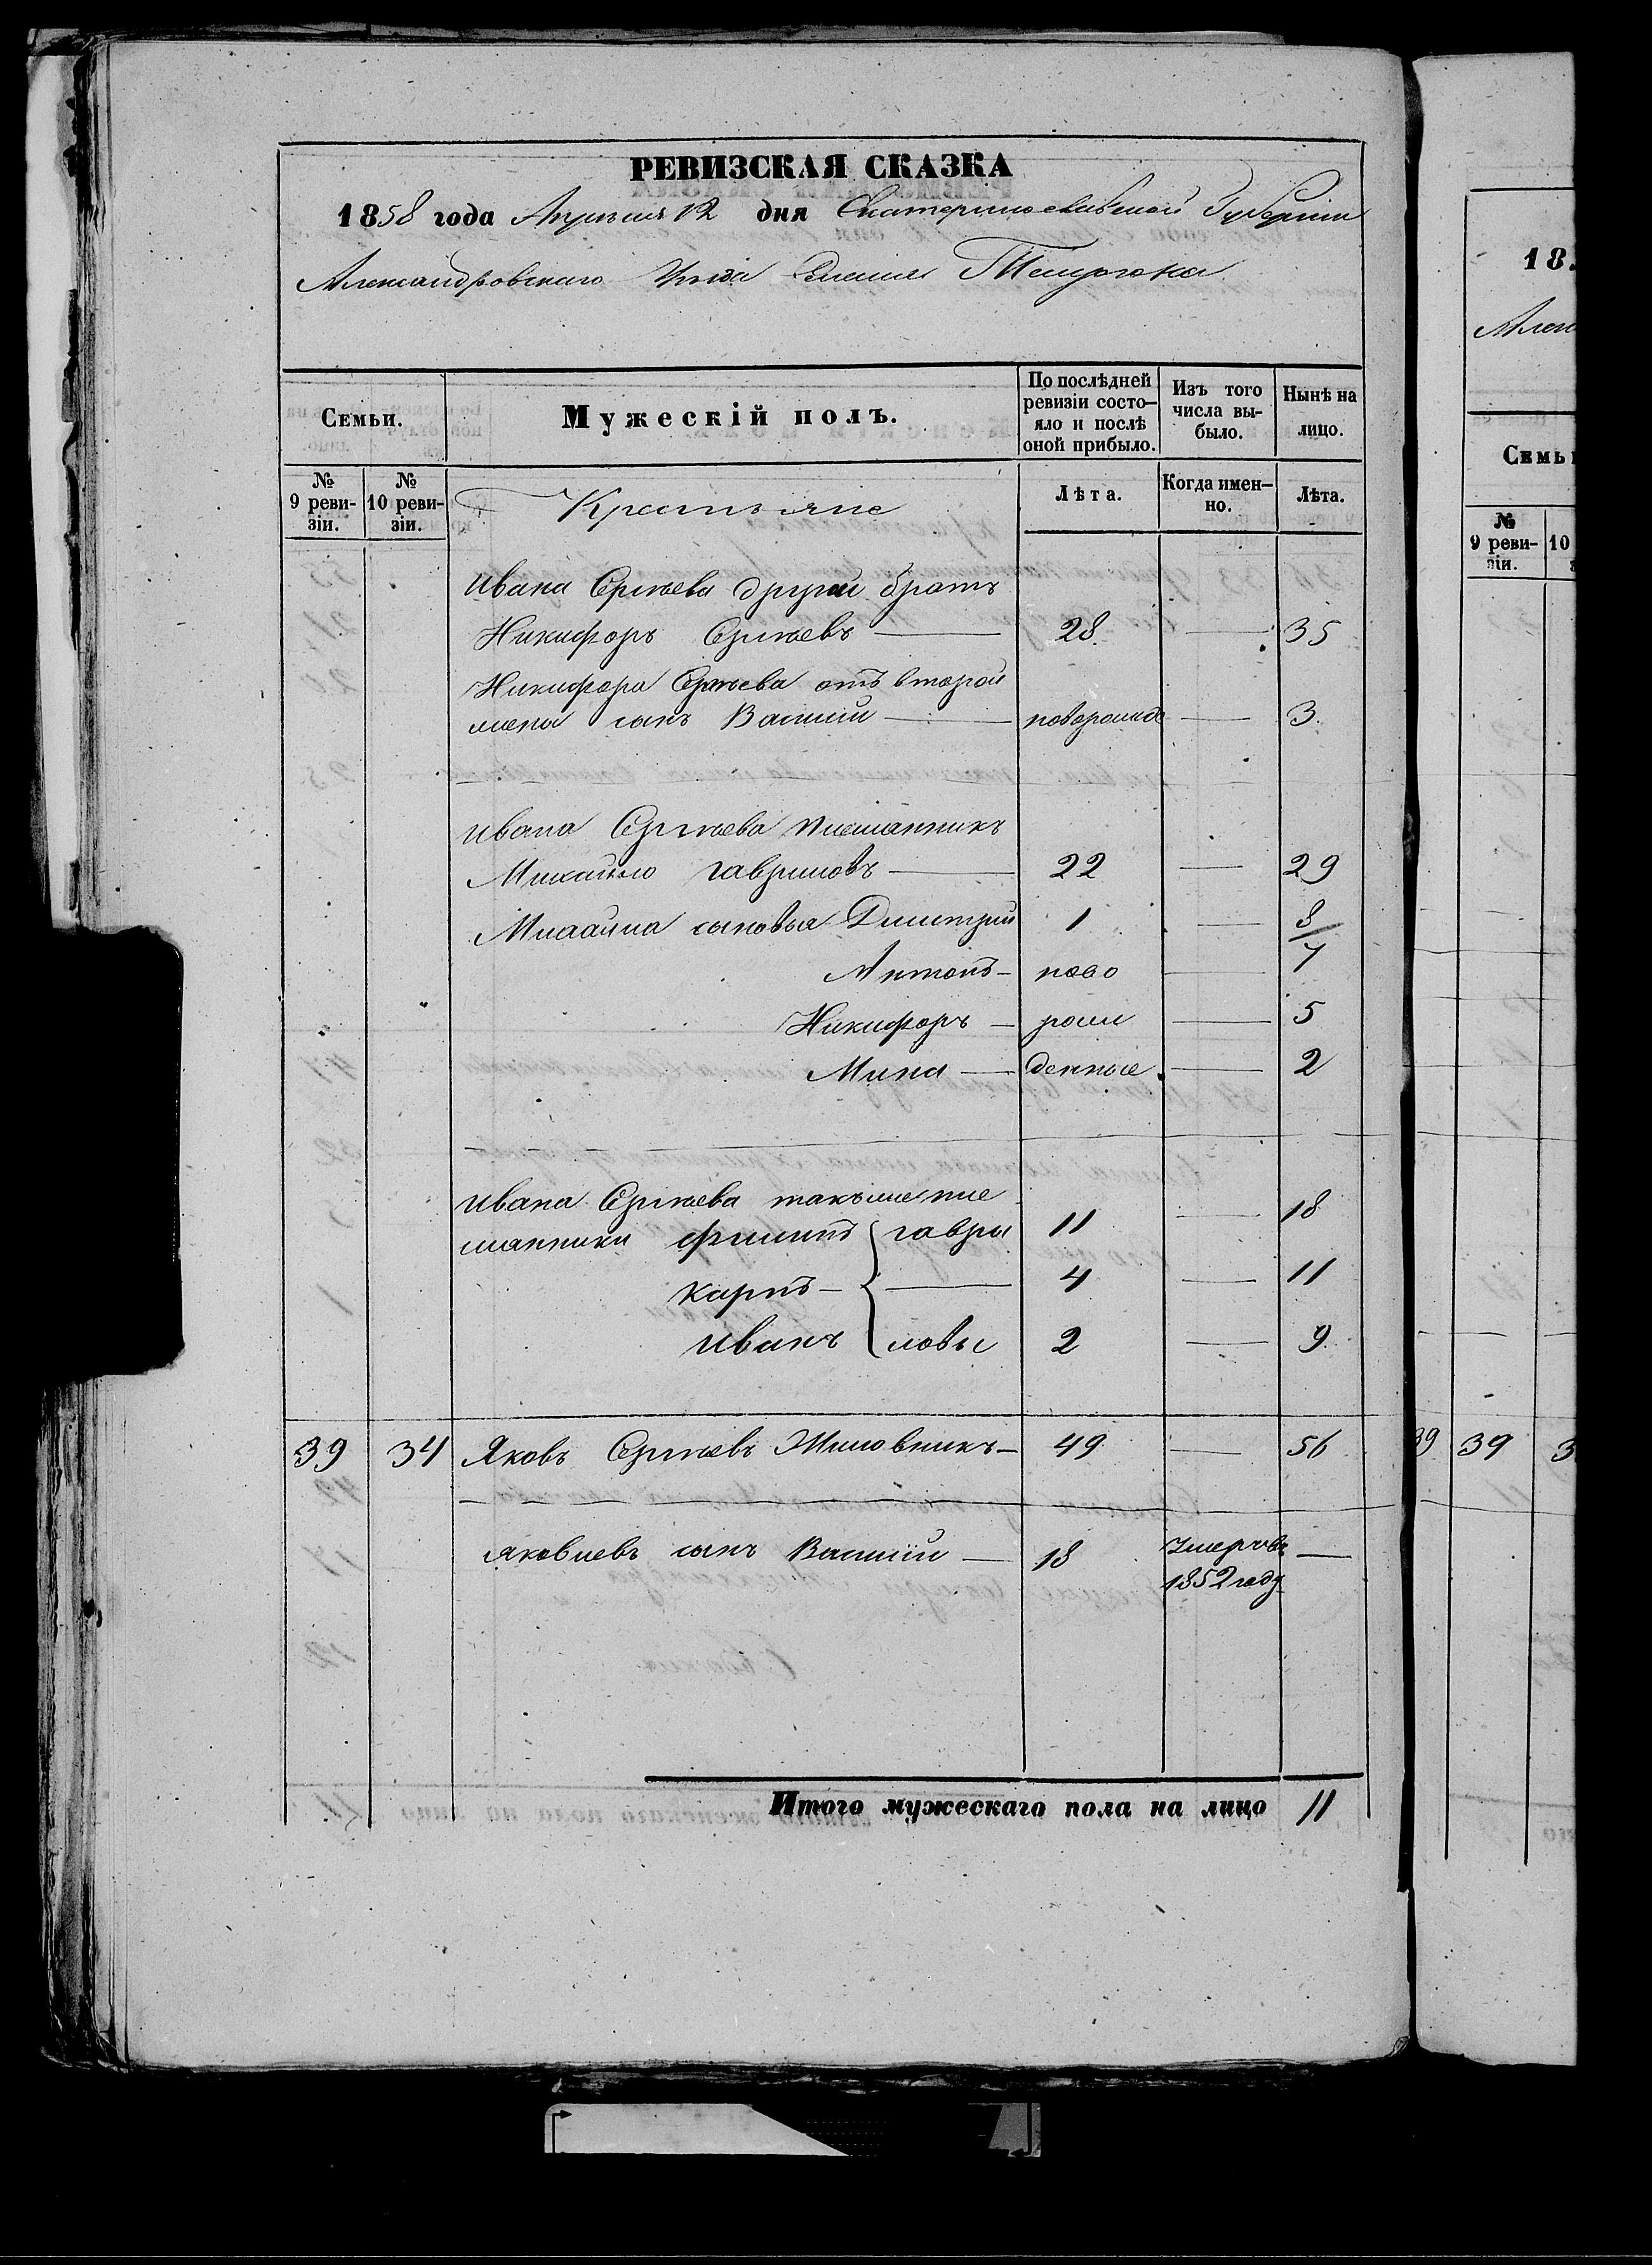 РЕВИЗСКАЯ СКАЗКА
1858 года Апрѣля 12 дня Екатеринославской Губерніи
Александровскаго Уѣзда Селенія
Семьи.
Мужескій полъ.
По послѣдней ревизіи состо-
яло и послѣ оной прибыло.
Изъ того числа вы-
было.
Нынѣ на лицо.
№ 9 реви-
зіи.
№ 10 реви-
зіи.
Крестьяне
Лѣта.
Когда имен-
но.
Лѣта.
Ивана Сергѣева другой братъ
Никифоръ Сергѣевъ — 28 — 35
Никифора Сергѣева отъ второй
жены сынъ Василій — новорожде — 3
Ивана Сергѣева племянникъ
Михайло Гавриловъ — 22 — 29
Михайла сыновья Дмитрій 1 — 8
Антонъ — ново — 7
Никифоръ — рож — 5
Мина — денные — 2
Ивана Сергѣева такъже пле
мянники Филипъ Гаври 11 — 18
Карпъ — — 4 — 11
Иванъ ловы 2 — 9
39 34 Яковъ Сергѣевъ Жиловникъ — 49 — 56
Яковлевъ сынъ Василій — 18 Умеръ въ —
1852 году
Итого мужескаго пола на лицо 11
18
Алек
Семьи
№ 9 реви-
зіи.
10
39 39 3